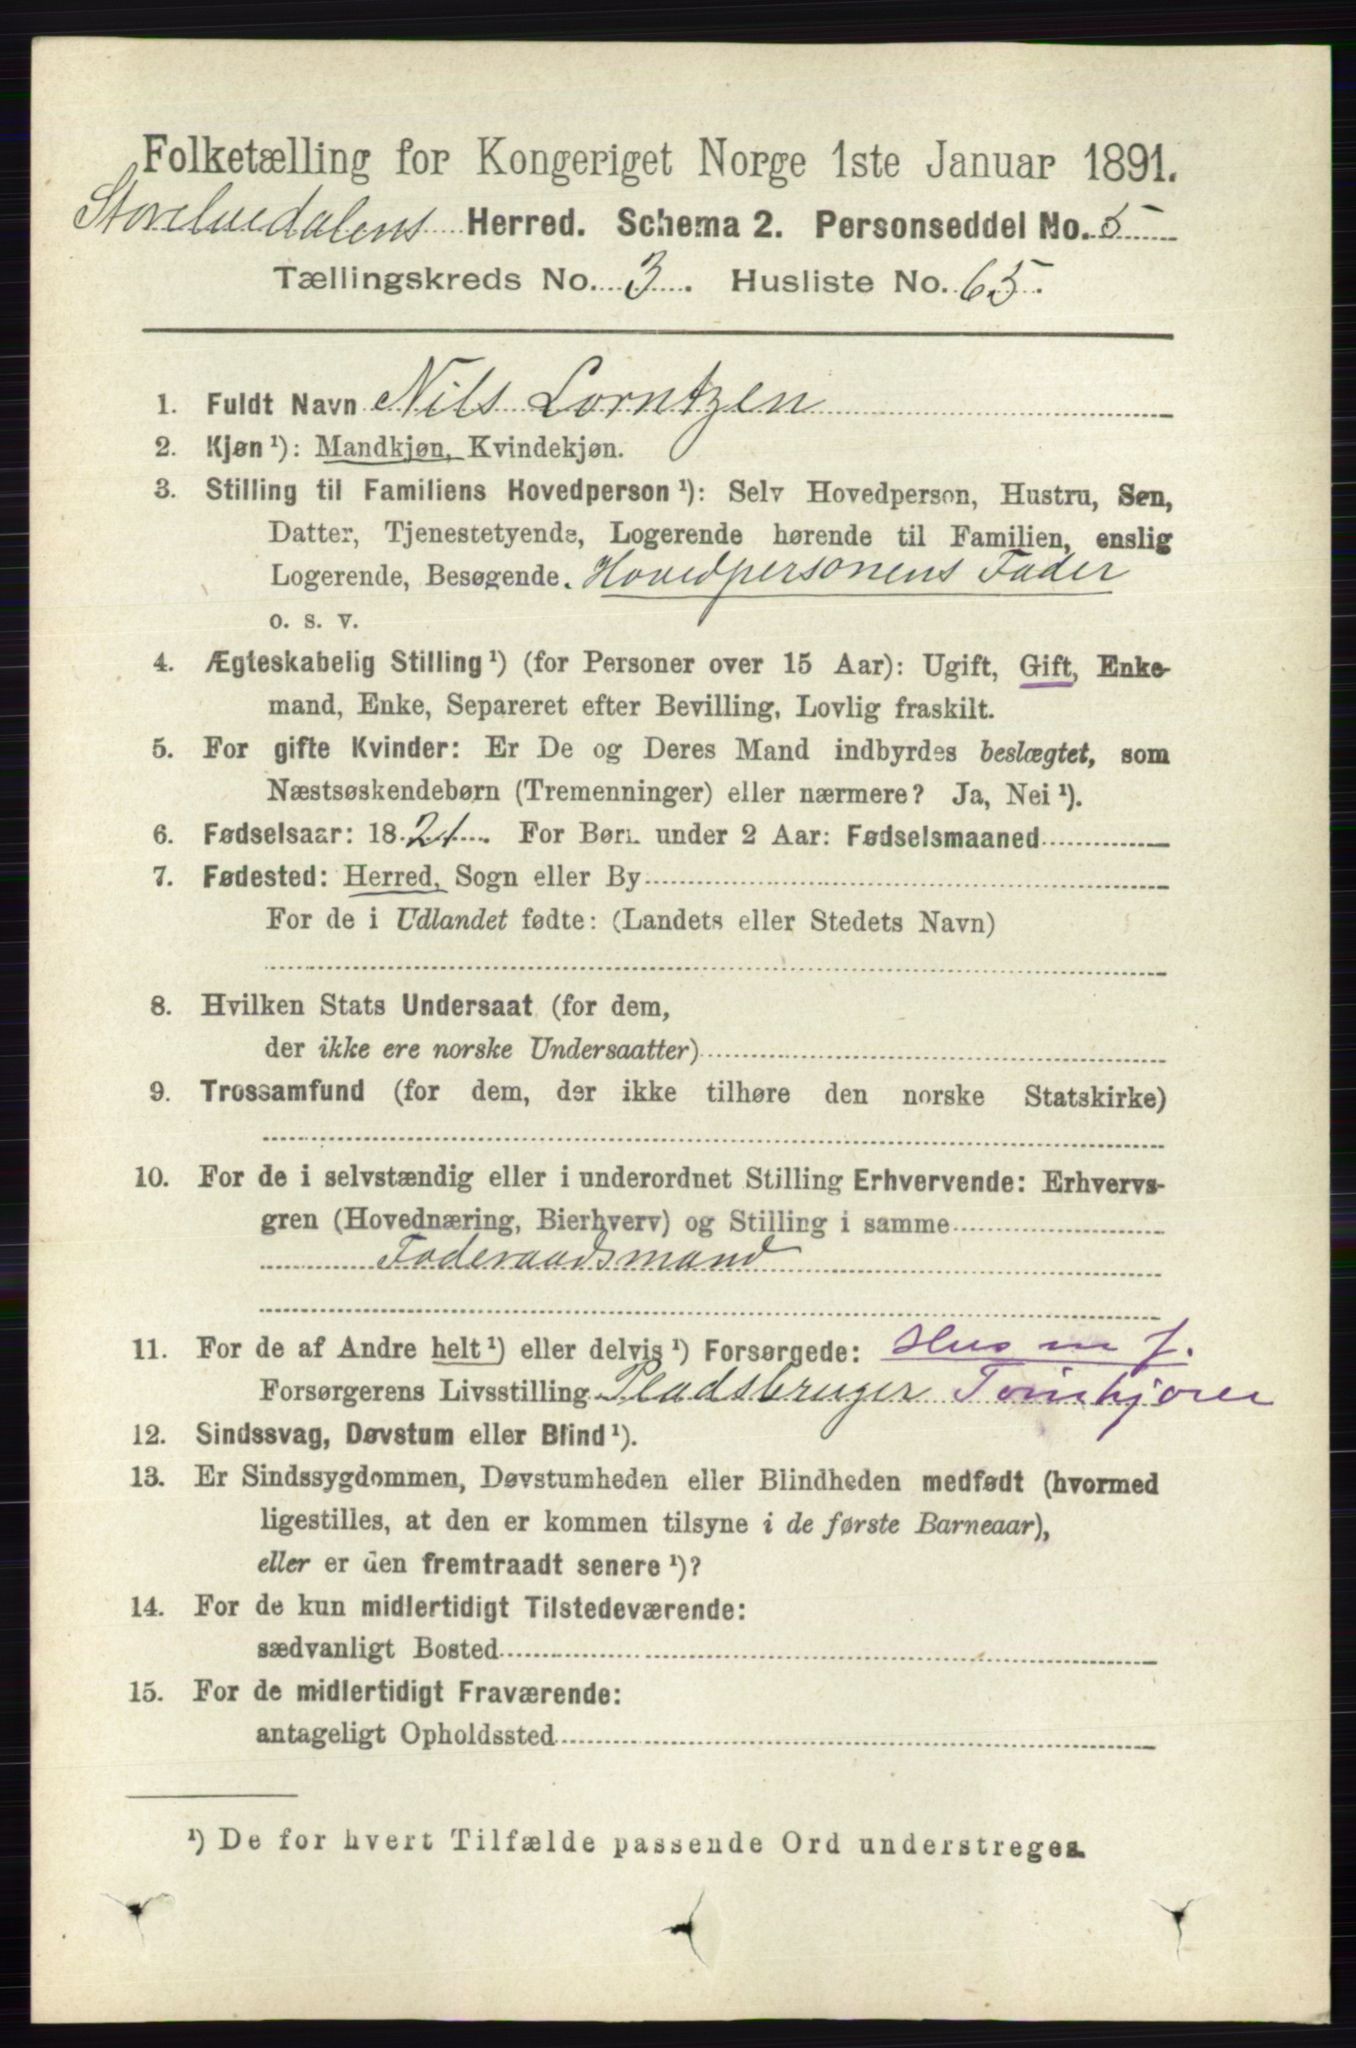 Folketælling for Kongeriget Norge 1ste Januar 1891.
Storelvedalens Herred. Schema 2. Personseddel No. 5
Tællingskreds No. 3. Husliste No. 65.
1. Fuldt Navn Nils Lorntzen
2. Kjøn ¹): Mandkjøn, Kvindekjøn.
3. Stilling til Familiens Hovedperson ¹): Selv Hovedperson, Hustru, Søn,
Datter, Tjenestetyende, Logerende hørende til Familien, enslig
Logerende, Besøgende. Hovedpersonens Fader
o. s. v.
4. Ægteskabelig Stilling ¹) (for Personer over 15 Aar): Ugift, Gift, Enke-
mand, Enke, Separeret efter Bevilling, Lovlig fraskilt.
5. For gifte Kvinder: Er De og Deres Mand indbyrdes beslægtet, som
Næstsøskendebørn (Tremenninger) eller nærmere? Ja, Nei ¹).
6. Fødselsaar: 1821. For Børn under 2 Aar: Fødselsmaaned
7. Fødested: Herred, Sogn eller By
For de i Udlandet fødte: (Landets eller Stedets Navn)
8. Hvilken Stats Undersaat (for dem,
der ikke ere norske Undersaatter)
9. Trossamfund (for dem, der ikke tilhøre den norske Statskirke)
10. For de i selvstændig eller i underordnet Stilling Erhvervende: Erhvervs-
gren (Hovednæring, Bierhverv) og Stilling i samme
Føderaadsmand
11. For de af Andre helt ¹) eller delvis ¹) Forsørgede: Husm m J.
Forsørgerens Livsstilling Pladsbruger Tømkjører
12. Sindssvag, Døvstum eller Blind ¹).
13. Er Sindssygdommen, Døvstumheden eller Blindheden medfødt (hvormed
ligestilles, at den er kommen tilsyne i de første Barneaar),
eller er den fremtraadt senere ¹)?
14. For de kun midlertidigt Tilstedeværende:
sædvanligt Bosted
15. For de midlertidigt Fraværende:
antageligt Opholdssted
¹) De for hvert Tilfælde passende Ord understreges.